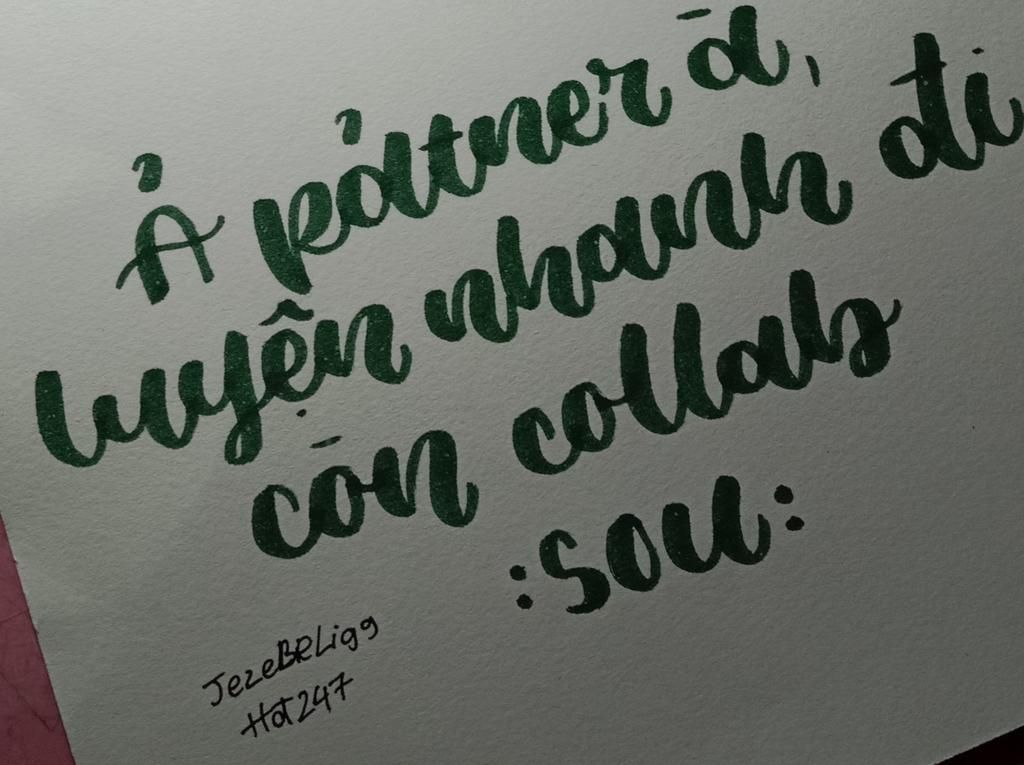 Ả pảtner à,
luyện nhanh đi
còn collab
:SOU:
JezeBRLigg
Hot247